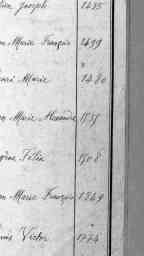 Joseph 1495
Marie François 1499
Marie 1480
Marie Alexandre 1755
Félix 1508
Marie François 1849
Victor 1774